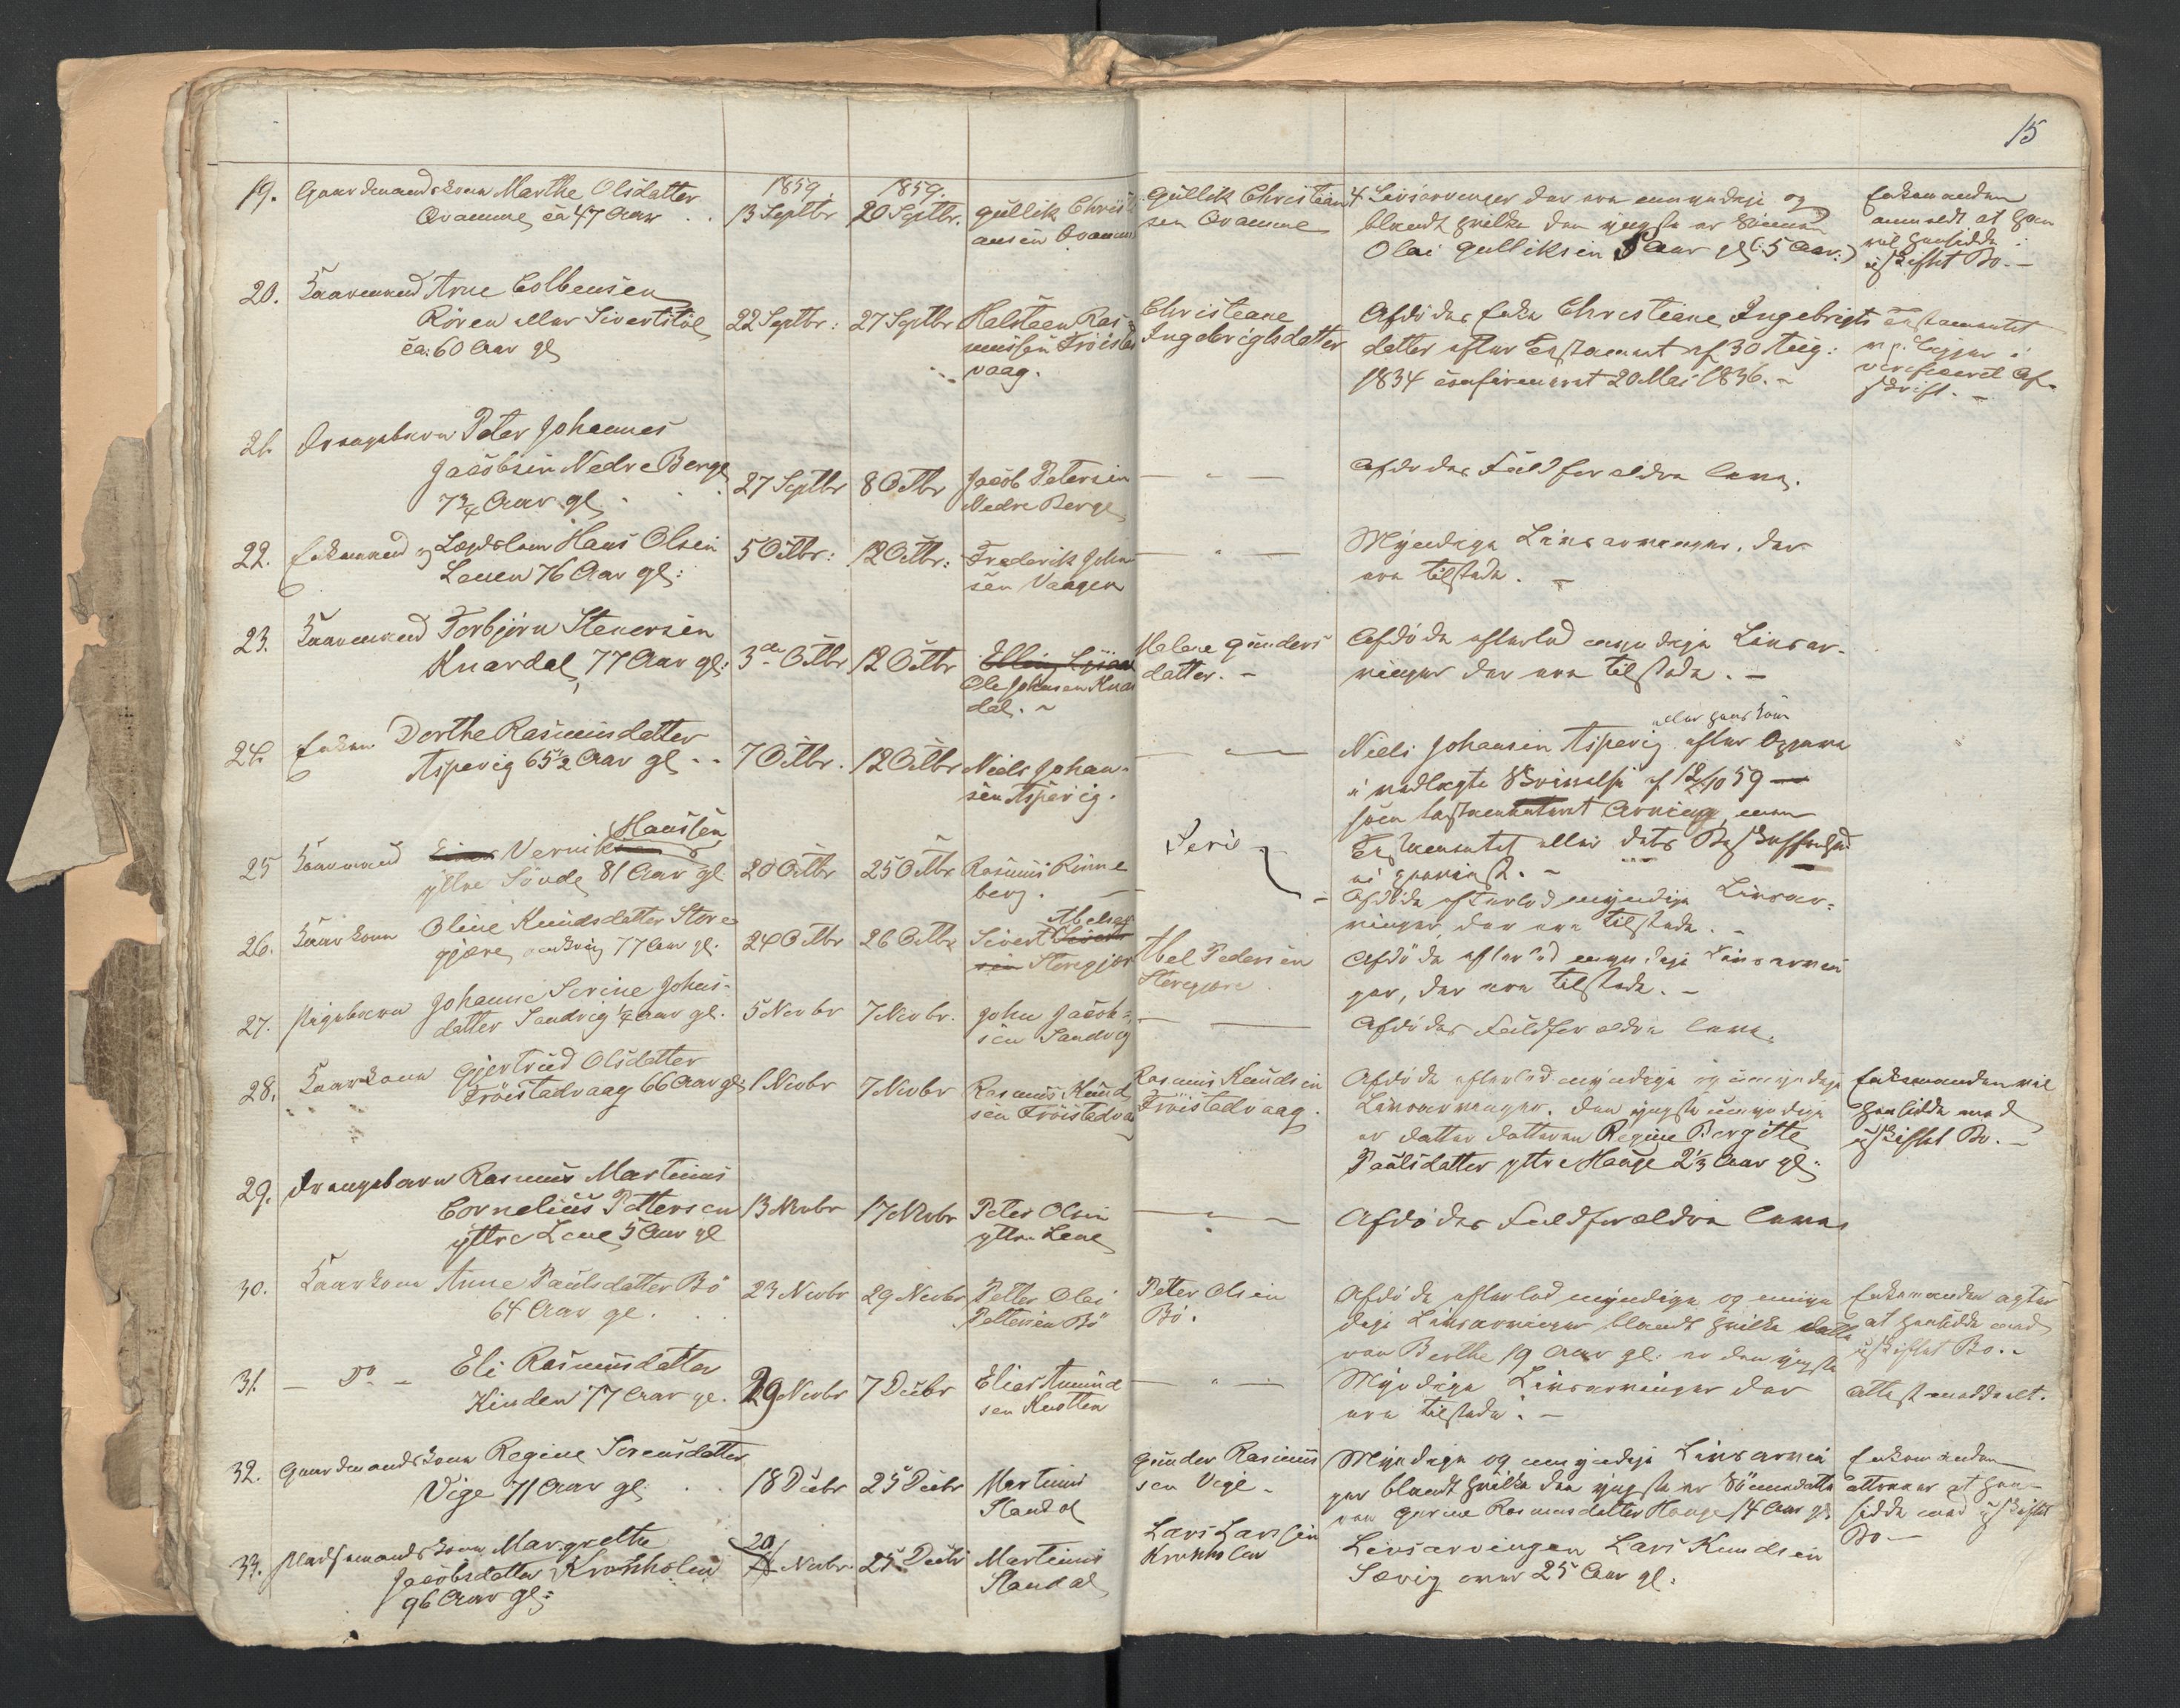 15
19. Gaardmandskone Marthe Olsdatter
Qvamme ca 47 Aar
1859.
13 Septbr
1859.
20 Septbr.
Gullik Christi
ansen Qvamme
Gullik Christian
sen Qvamme
4 Livsarvinger der ere umyndige og
blandt hvilke den yngste er Simon
Olai Gulliksen 5 Aar gl (: 5 Aar :)
Enkemanden
anmeldt at han
vil hensidde i
uskiftet Bo. -
20. Kaarmand Arne Colbensen
Rören eller Sivertstöl
ca: 60 Aar gl
22 Septbr:
27 Septbr
Halsteen Ras
mussen Fröistad
vaag.
Christiane
Ingebrigtsdatter
Afdödes Enke Christiane Ingebrigts
datter efter Testament af 30 Aug:
1834 confirmeret 20 Mai 1836. -
Testamentet
ligger i
verificeret Af-
skrift. -
21. Drengebarn Peter Johannes
Jacobsen Nedre Berge
7 3/4 Aar gl
27 Septbr
8 Octbr
Jacob Petersen
Nedre Berge
— " —
Afdödes Fuldforældre leve.
22. Enkemand og Lægdslem Hans Olsen
Leuen 76 Aar gl:
5 Octbr:
12 Octbr:
Frederik John
sen Vaagen
— " —
Myndige Livsarvinger, der
ere tilstede. -
23. Kaarmand Torbjörn Stenersen
Knardal, 77 Aar gl:
3die Octbr
12 Octbr
Ole Johnsen Knar
dal. -
Malene Gunders
datter. -
Afdöde efterlod myndige Livsar-
vinger der ere tilstede. -
24. Enken Dorthe Rasmusdatter
Aspevig 65 1/2 Aar gl
7 Octbr.
12 Octbr
Niels Johan-
sen Aspevig.
— " —
eller hans Kone
Niels Johansen Aspevig efter Opgave
i vedlagte Skrivelse af 12/10 59 —
som testamenteret Arving, men
Testamentet eller dets Beskaffenhed
ei
25 Kaarmand Vernik Hanssen
yttre Sövde 81 Aar gl
20 Octbr
25 Octbr
Rasmus Rinne
berg.
Afdöde efterlod myndige Livsar-
vinger, der ere tilstede. -
26. Kaarkone Oline Knudsdatter Store
gjære, omkring 77 Aar gl.
24 Octbr
26 Octbr
Sivert Abelsen
Storegjære
Abel Pedersen
Storegjære
Afdöde efterlod myndige Livsarvin
ger, der ere tilstede. -
27. Pigebarn Johanne Serine Johns-
datter Sandvig 1/4 Aar gl.
5 Novbr
7 Novbr.
John Jacob-
sen Sandvig
Afdödes Fuldforældre leve.
28. Kaarkone Gjertrud Olsdatter
Fröistadvaag 66 Aar gl
1 Novbr
7 Novbr
Rasmus Knud
sen Fröistadvaag
Rasmus Knudsen
Fröistadvaag.
Afdöde efterlod myndige og umyndige
Livsarvinger. Den yngste umyndige
er Datter Datteren Regine Bergitte
Paulsdatter yttre Hauge 2 1/3 Aar gl.
Enkemanden vil
hensidde med
uskiftet Bo. -
29. Drengebarn Rasmus Martinus
Cornelius Pettersen
yttre Leue 5 Aar gl
13 Novbr
17 Novbr
Peter Olsen
yttre Leue
— " —
Afdödes Fuldforældre leves
30. Kaarkone Anne Paulsdatter Bö
64 Aar gl.
23 Novbr
29 Novbr
Petter Olai
Pettersen Bö
Peter Olsen
Bö.
Afdöde efterlod myndige og umyn
dige Livsarvinger blandt hvilke Datte
ren Berthe 19 Aar gl: er den yngste
Enkemanden agter
at hensidde med
uskiftet Bo. -
31. — Do — Eli Rasmusdatter
Kinden 77 Aar gl.
29 Novbr
7 Decbr
Elias Amund
sen Knotten
— " —
Myndige Livsarvinger der
ere tilstede. -
Attest meddeelt.
32. Gaardmandskone Regine Sörensdatter
Vige 71 Aar gl.
18 Decbr
25 Decbr
Martinus
Standal
Gunder Rasmus
sen Vige -
Myndige og umyndige Livsarvin
ger blandt hvilke den yngste er Sönnedatte
ren Gurine Rasmusdatter Hauge 14 Aar gl.
Enkemanden
attraaer at hen-
sidde med uskiftet
Bo -
33. Pladsmandskone Margrethe
Jacobsdatter Krohnholm
96 Aar gl:
20
Novbr.
25 Decbr
Martinus
Standal
Lars Larssen
Krohnholm
Livsarvingen Lars Knudsen
Sævig over 25 Aar gl.